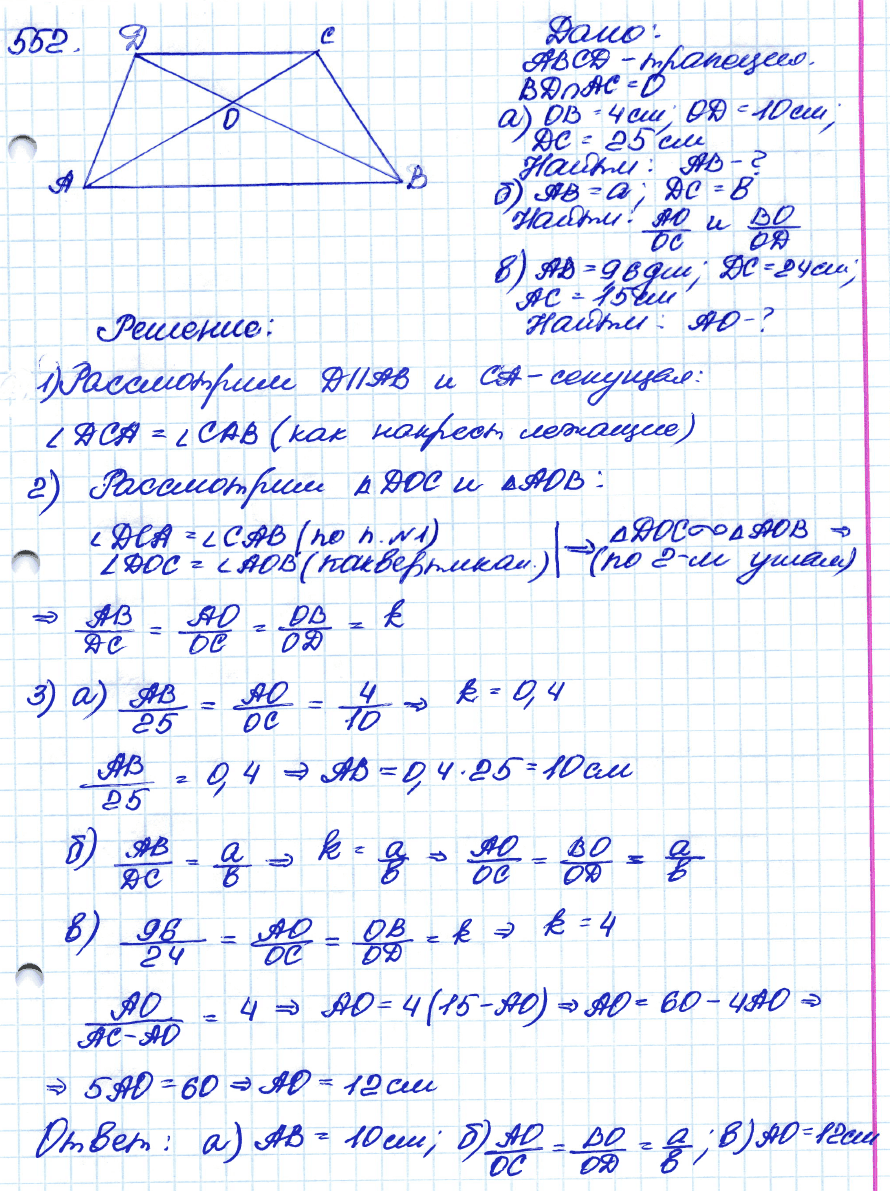 552.
D
C
O
A
B
Дано:
ABCD - трапеция.
BD∩AC = O
а) OB = 4 см; OD = 10 см;
DC = 25 см
Найти: AB - ?
б) AB = a; DC = B
Найти: AO/OC и BO/OD
в) AB = 96 дм; DC = 24 см;
AC = 15 см
Найти: AO - ?
Решение:
1) Рассмотрим D||AB и CA - секущая:
∠DCA = ∠CAB (как накрест лежащие)
2) Рассмотрим △DOC и △AOB:
∠DCA = ∠CAB (по п. №1)
∠DOC = ∠AOB (как вертикал.)
⇒ △DOC ∾ △AOB ⇒
(по 2-м углам)
⇒ AB/DC = AO/OC = OB/OD = k
3) а) AB/25 = AO/OC = 4/10 ⇒ k = 0,4
AB/25 = 0,4 ⇒ AB = 0,4 · 25 = 10 см
б) AB/DC = a/b ⇒ k = a/b ⇒ AO/OC = BO/OD = a/b
в) 96/24 = AO/OC = OB/OD = k ⇒ k = 4
AO/AC-AO = 4 ⇒ AO = 4(15-AO) ⇒ AO = 60 - 4AO ⇒
⇒ 5AO = 60 ⇒ AO = 12 см
Ответ: а) AB = 10 см; б) AO/OC = BO/OD = a/b; в) AO = 12 см